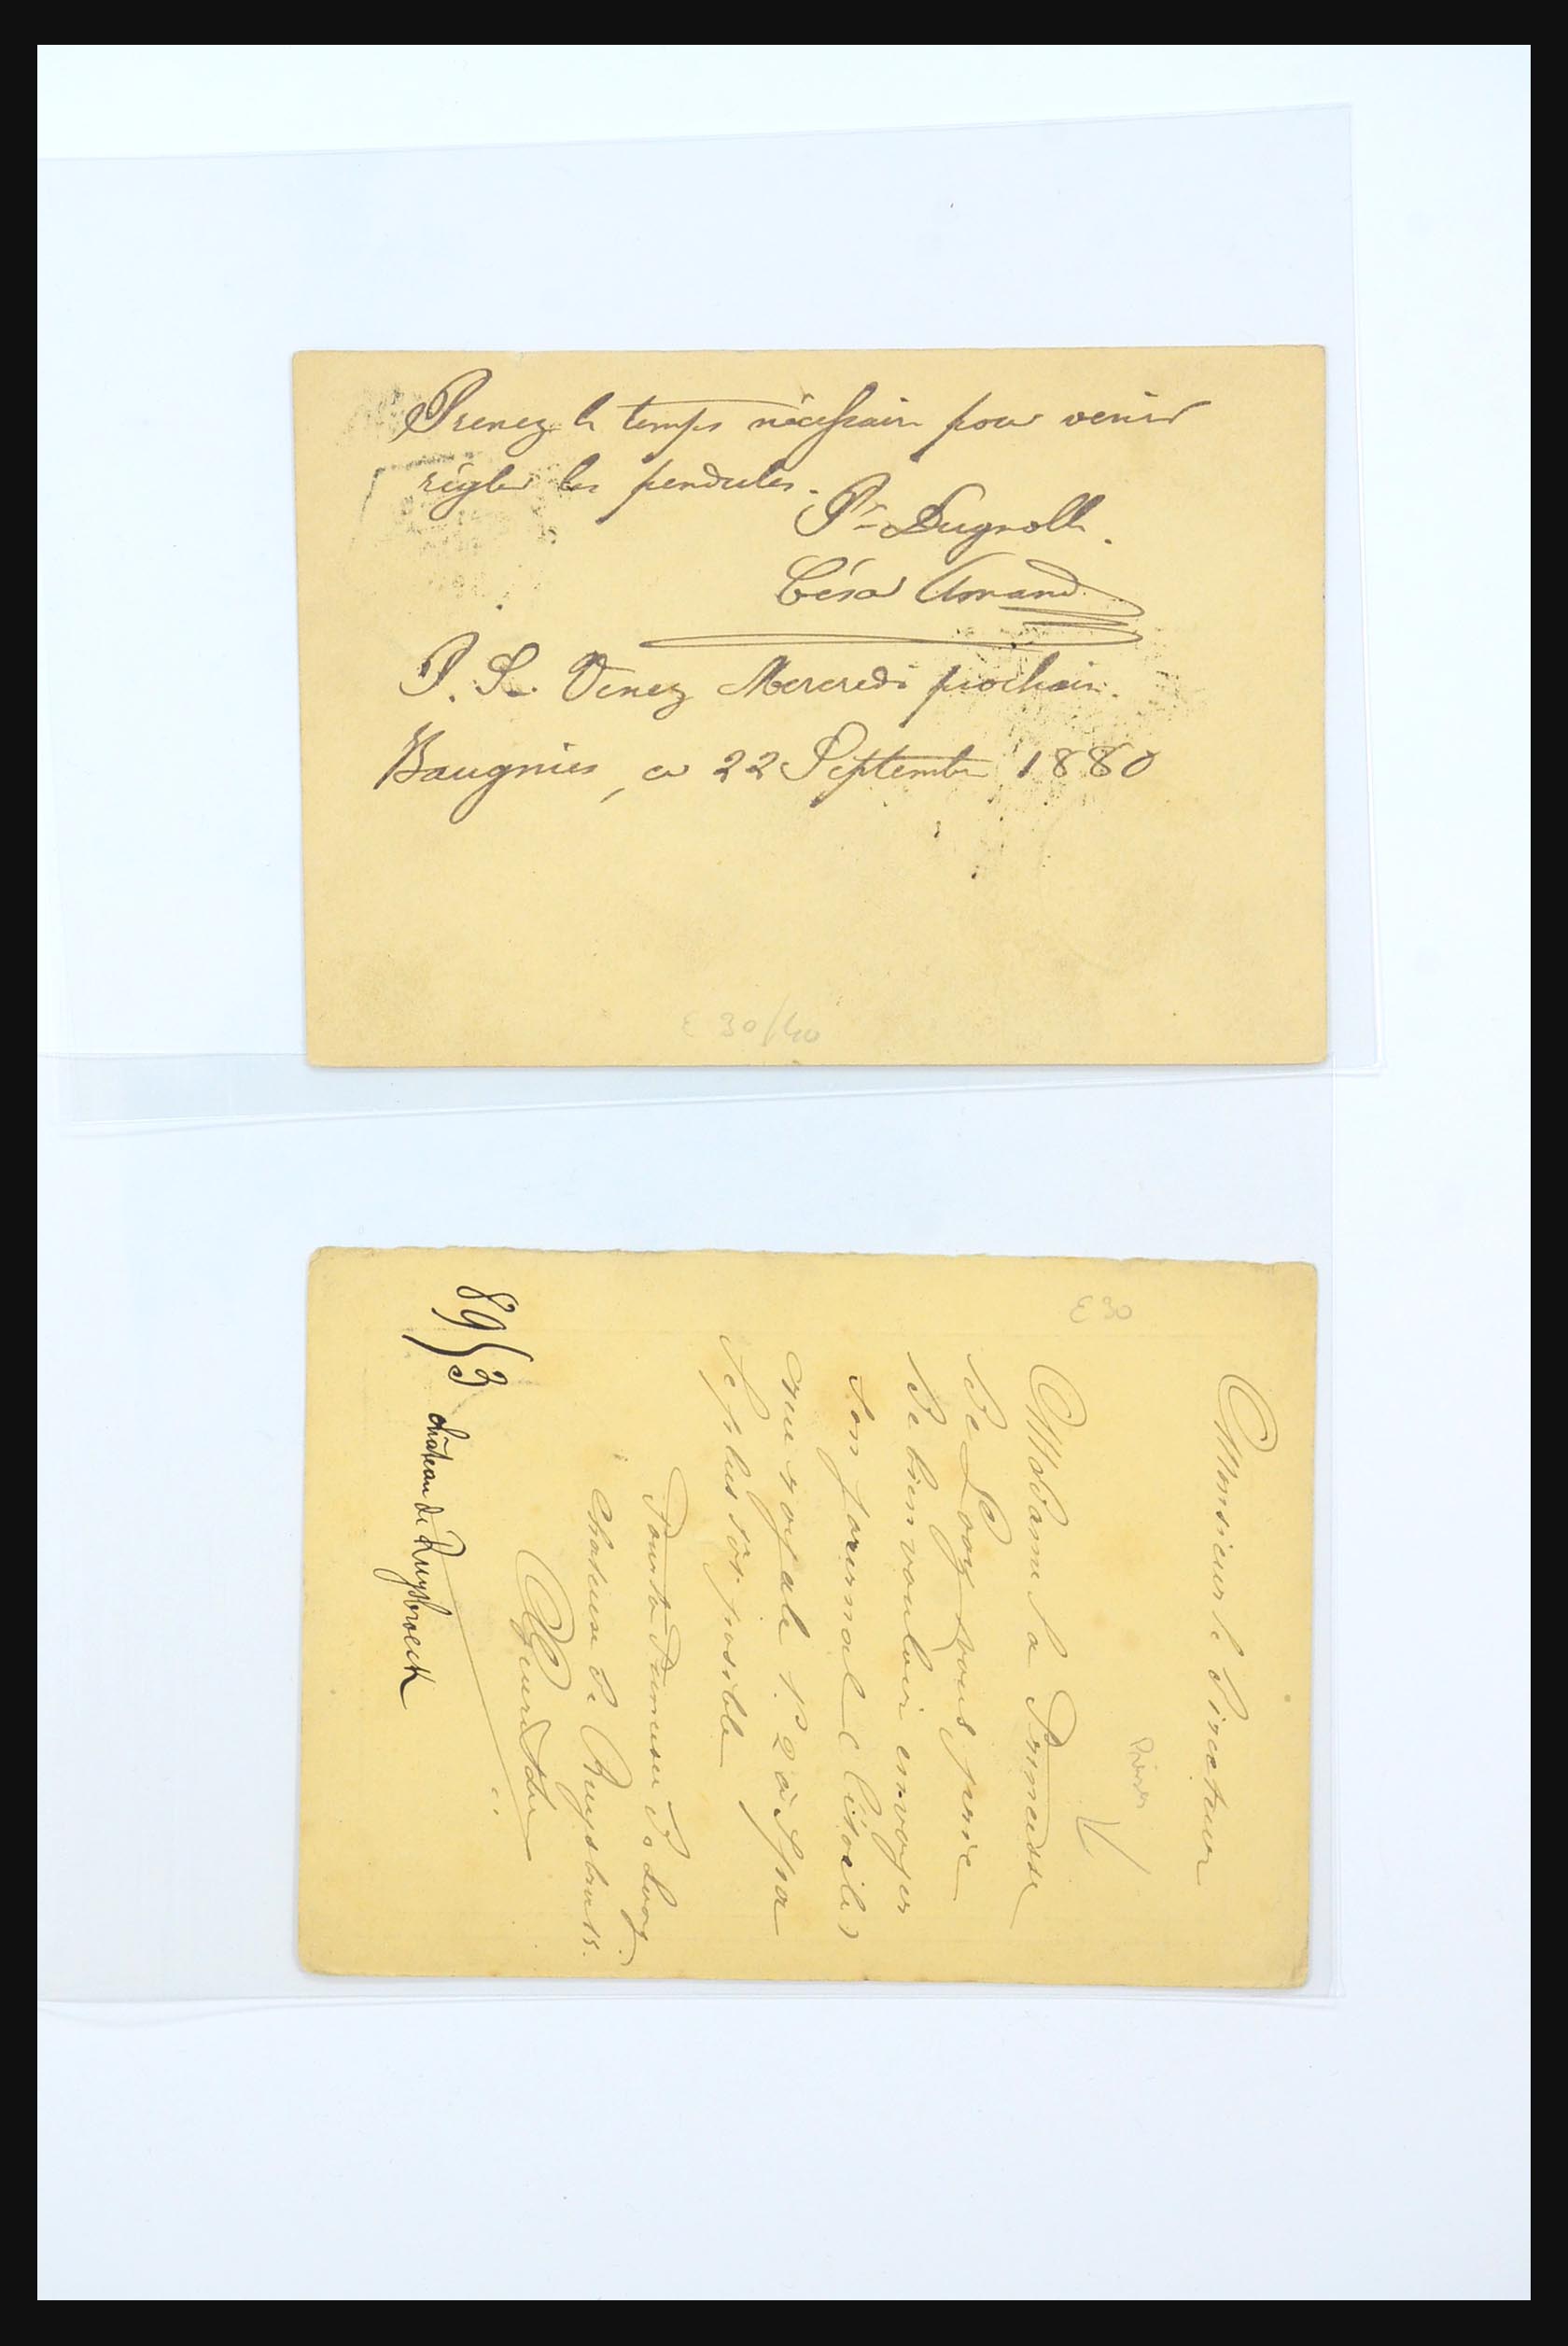 Prenez le temps nécessaire pour venir
régler les pendules.
Pr Dugnolle.
César Amand
P. S. Venez Mercredi prochain.
Baugnies, ce 22 Septembre 1880
€ 30/40
€ 30
Monsieur le Directeur
Madame la Princesse
De Looz vous prie
De bien vouloir envoyer
son journal (l'étoile)
rue royale No 2 à Spa
le plus tôt possible
Pour la Princesse De Looz.
Chateau De Ruysbroeck.
89/3 château de Ruysbroeck